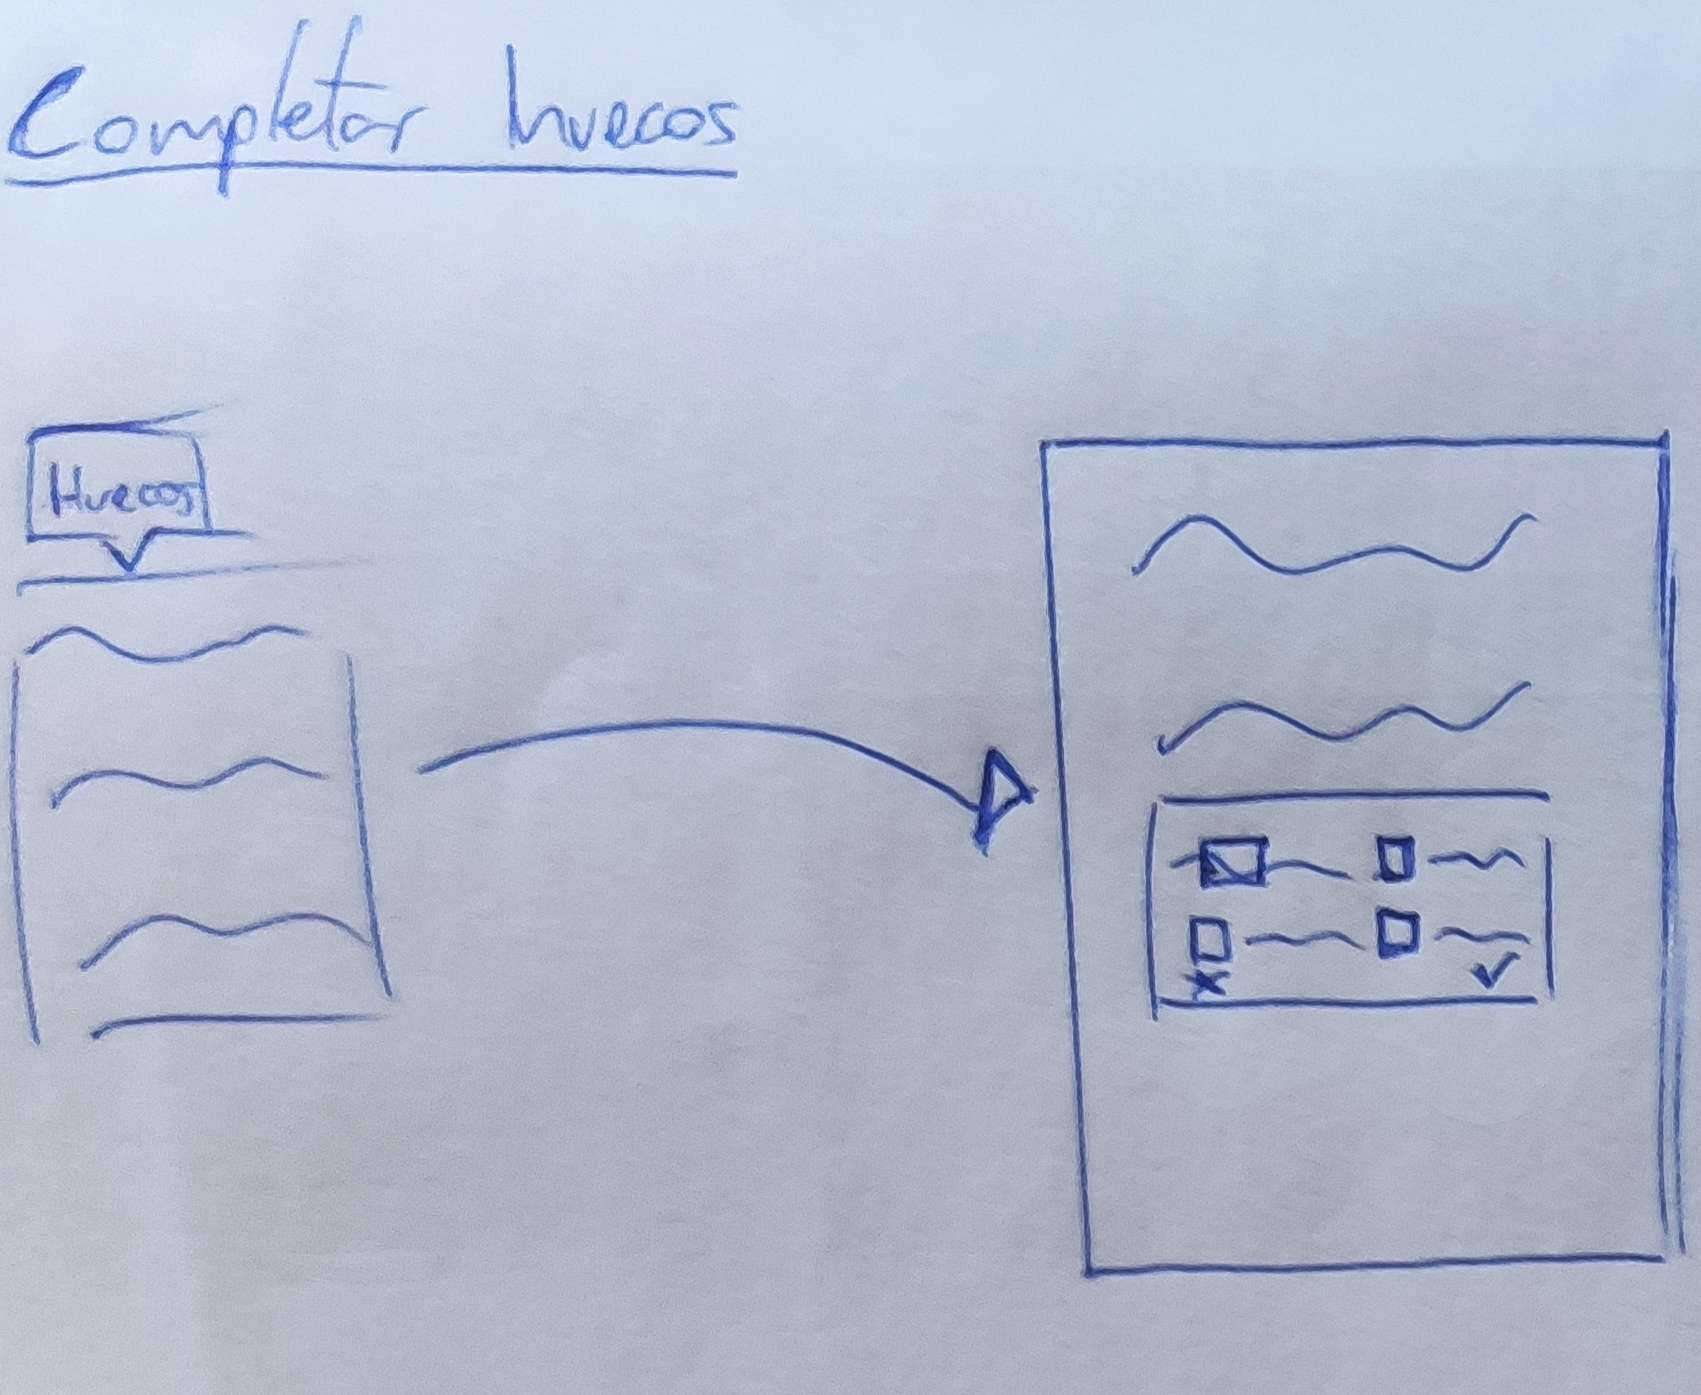 Completar huecos
Huecos